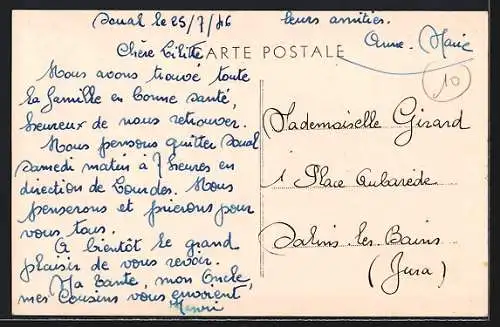 Soual le 25/7/46
Chère Lilitte
CARTE POSTALE
Nous avons trouvé toute
la famille en bonne santé,
heureux de nous retrouver.
Nous pensons quitter Soual
samedi matin à 7 heures en
direction de Lourdes. Nous
penserons et prierons pour
vous tous.
A bientôt le grand
plaisir de vous revoir.
Ma tante, mon Oncle,
mes Cousins vous envoient
Henri
leurs amitiés.
Anne-Marie
10
Mademoiselle Girard
1 Place Aubarède
Salins les Bains
(Jura)